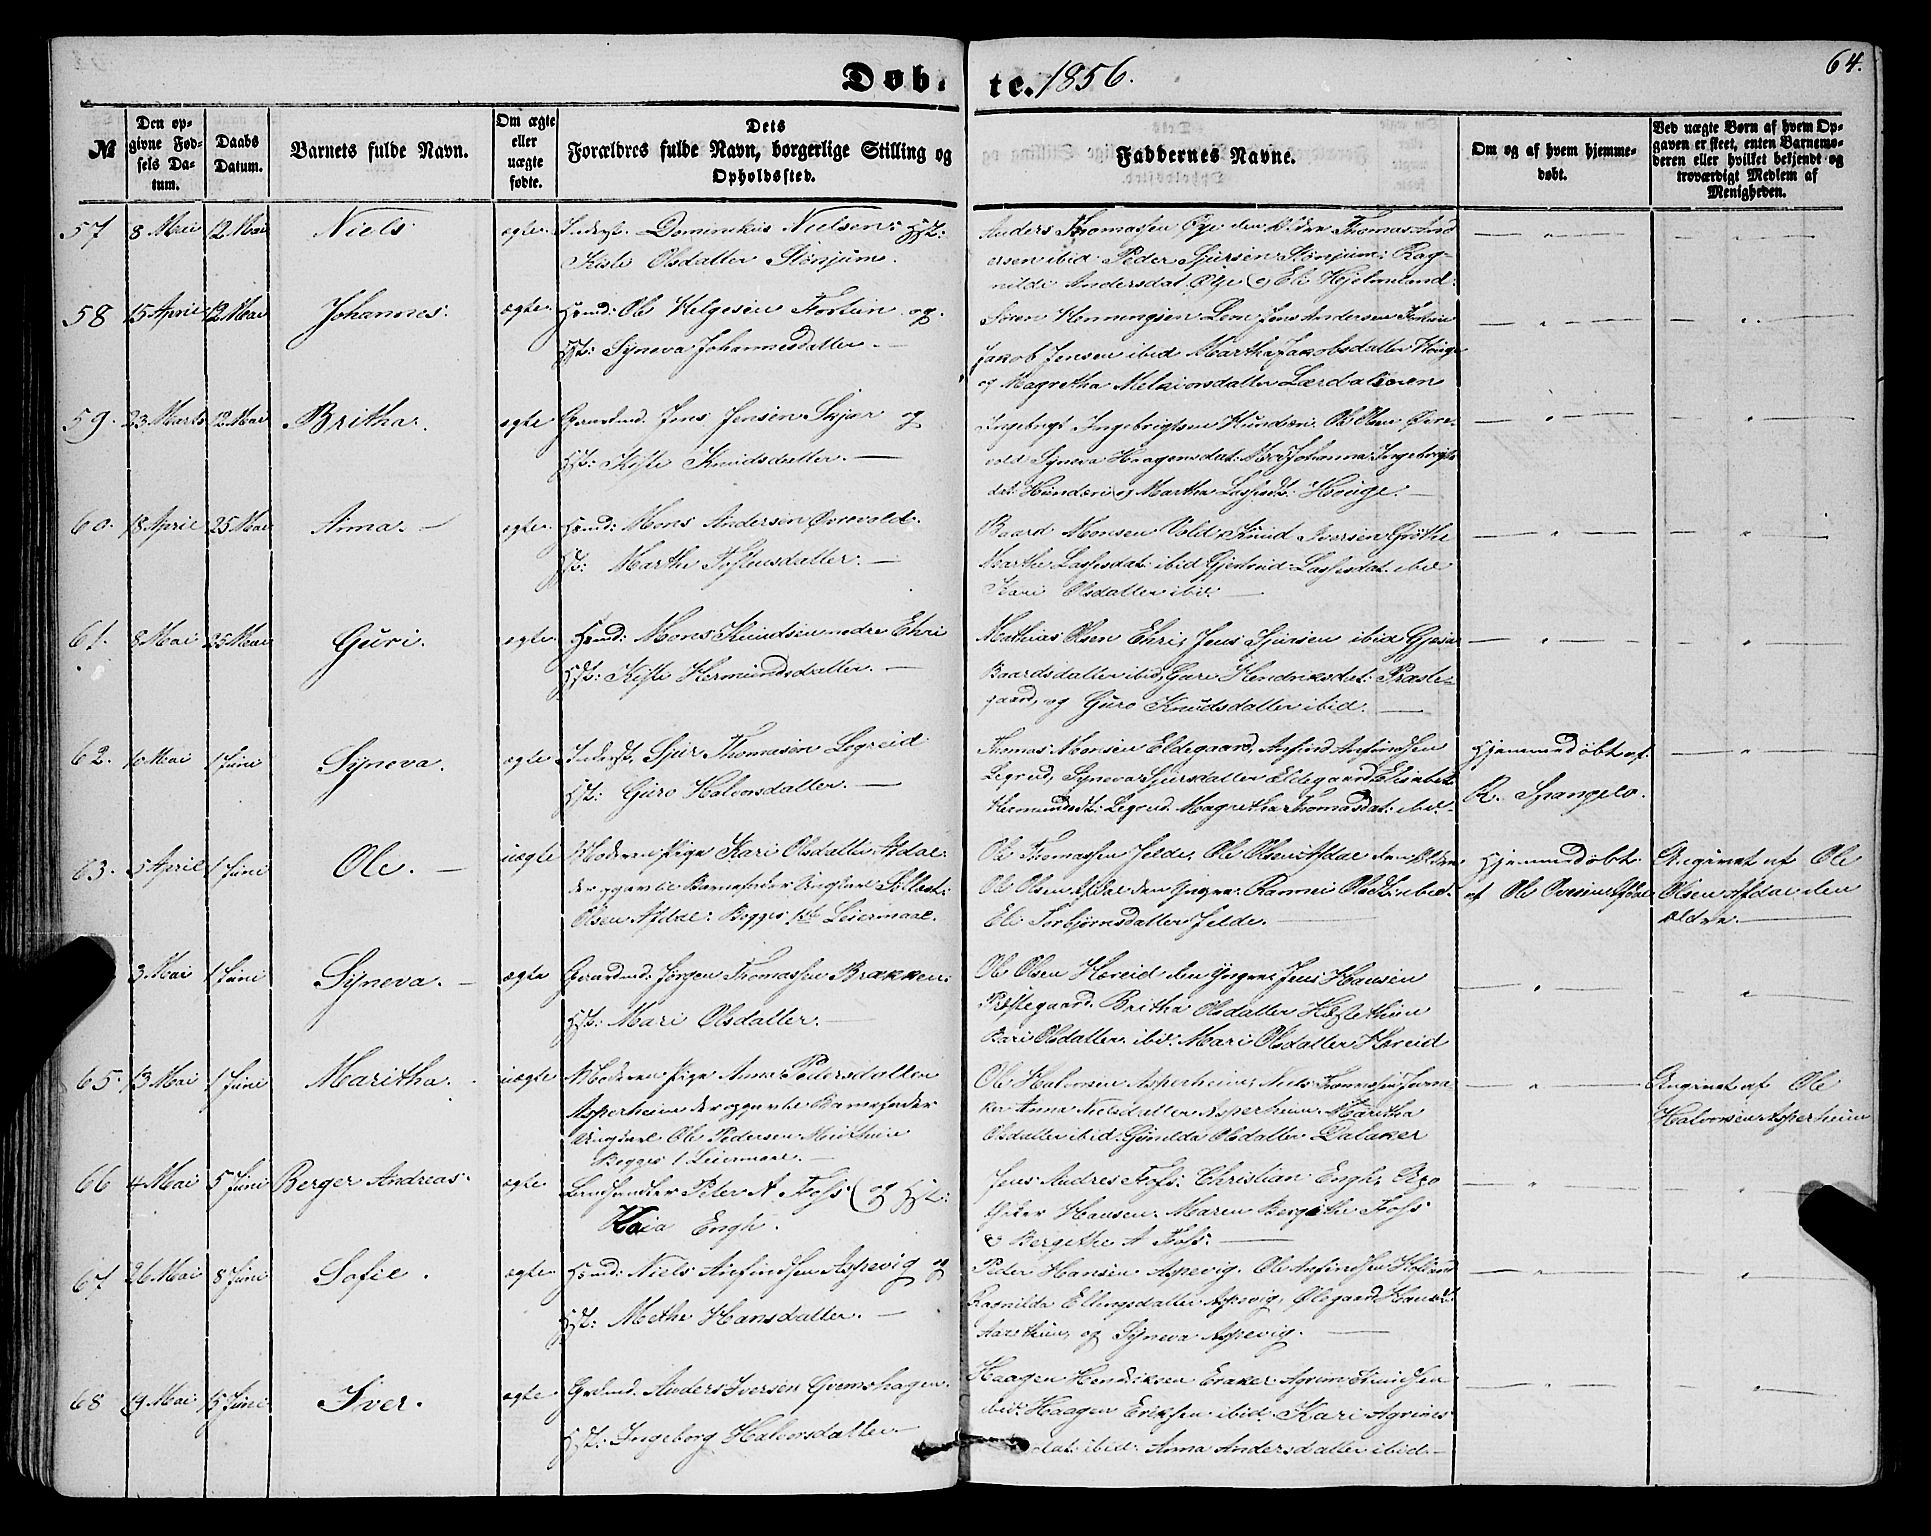 Døb- te. 1856. 64.
№
Den opgivne Fødsels Datum.
Daabs Datum.
Barnets fulde Navn.
Om ægte eller uægte fødte.
Dets Forældres fulde Navn, borgerlige Stilling og Opholdssted.
Faddernes Navne.
Om og af hvem hjemmedøbt.
Ved uægte Børn af hvem Opgaven er skeet, enten Barnemoderen eller hvilket bekjendt og troværdigt Medlem af Menigheden.
57 8 Mai 12 Mai Niels ægte Inderst: Dominikus Nielsen: Hst:
Kisti Olsdatter Stønjum.
Anders Thomassen Øye den Ældre Thomas And
ersen ibid Peder Sjursen Stønjum: Rag-
nilde Andersdat: Øye og Eli Hjelmeland:
58 15 April 12 Mai Johannes. ægte Hmd: Ole Helgesen Fortun og
Hst: Syneva Johannesdatter.
Søren Henningsen Jens Andersen
Jakob Jensen ibid Martha Jakobsdatter Houge
og Magretha Melkiorsdatter Lærdalsøren
59. 23 Marts 12 Mai Britha. ægte Grmd. Jens Jensen Skjær og
Hst: Kisti Knudsdatter.
Ingebrigt Ingebrigtsen Hundere Ole Olsen Øvre-
vold Syneva Haagensdat: Johanna Ingebrigts
dat: Hundere og Martha Lassedt: Houge.
60. 18 April 25 Mai Anna. ægte Hmd: Mons Andersen Øvrevold.
Hst: Marthe Tostensdatter.
Baard Monsen Vold, Knud Iversen Grøthe
Marthe Lassesdat: ibid Gjertrud Lassesdat. ibid
Kari Olsdatter ibid.
61. 8 Mai 25 Mai Guri. ægte Hmd: Mons Knudsen nedre Ehri
Hst: Kisti Hermundsdatter.
Mathias Olsen Ehri, Jens Sjursen ibid
Baardsdatter ibid, Guri Hendriksdat: Præste-
gaard, og Guro Knudsdatter ibid.
62. 10 Mai 1 Juni Syneva. ægte Inderst, Sjur Thomasen Legreid
Hst: Guro Halvorsdatter.
Thomas Monsen Eldegaard, Anfind Anfindsen
Legreid, Syneva Sjursdatter Eldegaard Elisabet
Hermundsdt: Legreid. Magretha Thomasdat: ibid.
Hjemmedøbt af
R. Spangelo.
63. 5 April 1 Juni Ole. uægte Moderen Pige Kari Olsdatter Afdal
der opgav til Barnefader Ungkarl
Olsen Afdal: Begges 1ste Leiermaal.
Ole Thomassen Jelde, Ole Olsen Afdal den Ældre
Ole Olsen Afdal den Yngre. Rannei Olsdt: ibid.
Eli Torbjørnsdatter Jelde.
Hjemmedøbt
af Ole Afdal
Angivet af Ole
Olsen Afdal den
ældre.
3 Mai 1 Juni Syneva. ægte Gaardmd: Jørgen Thomassen Brækken:
Hst: Mari Olsdatter.
Ole Olsen Hæreid den yngre, Jens Hansen
Præstegaard. Britha Olsdatter Hæstethun
Kari Olsdatter ibid. Mari Olsdatter Hæreid
65. 13 Mai 1 Juni Maritha. uægte Moderen Pige Anna Pedersdatter
Asperheim der opgav til Barnefader
Ungkarl Ole Pedersen
Begges 1 Leiermaal.
Ole Halvorsen Asperheim, Niels Thomassen
Anna Nielsdatter Asperheim. Maritha
Olsdatter ibid: Gunilda Olsdatter Dalaker
Angivet af Ole
Halvorsen Asperheim
66 4 Mai 5 Juni Berger Andreas. ægte Landhandler Peter A. Foss og Hst:
Kaia Engh.
Jens Andres Foss: Christian Engh,
Hansen. Maren Bergithe Foss
& Bergethe A Foss.
67 26 Mai 8 Juni Sofie. ægte Hmd: Niels Anfindsen Aspevig og
Hst: Methe Hansdatter.
Peder Hansen Aspevig. Ole Anfindsen
Ragnilda Ellingsdatter Aspevig, Ølegaard Hansdt.
Aarethun, og Syneva Aspevig.
68 19 Mai 15 Juni Iver. ægte Grdmd. Anders Iversen Gramshagen.
Hst: Ingeborg Halvorsdatter
Haagen Hendriksen Eraker Agrim Knudsen
ibid: Haagen Eriksen ibid: Kari Agrims
dat: ibid: Anna Andersdatter ibid.